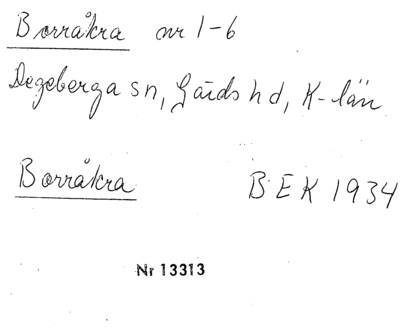 Borråkra nr 1-6
Degeberga sn, Gärds hd, K-län
Borråkra BEK 1934
Nr 13313